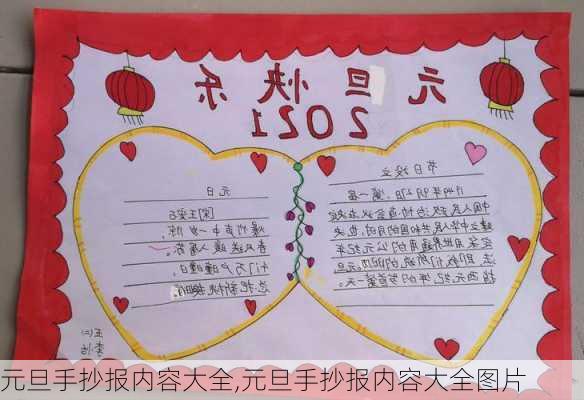 元旦快乐
2021
节日设立
1949年9月27日,第一届
中国人民政治协商会议决定
建立中华人民共和国的同时,也决
定采用世界通用的公元纪年
法,即我们所说的阳历。元旦
指公元纪年的岁首第一天
元日
[宋]王安石
爆竹声中一岁除,
春风送暖入屠苏。
千门万户曈曈日,
总把新桃换旧符。
五(二)
元旦手抄报内容大全,元旦手抄报内容大全图片